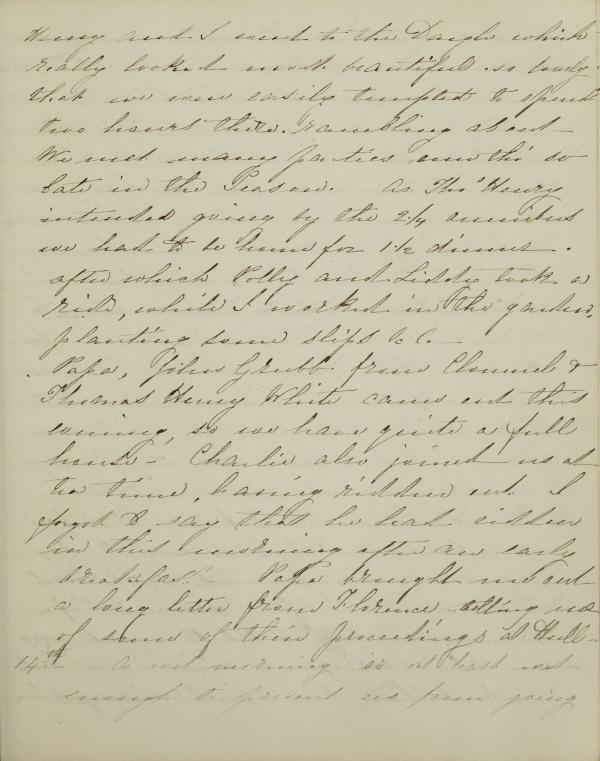 Henry and I went to the Dargle which
really looked most beautiful so lovely
that we were easily tempted to spend
two hours there, rambling about -
We met many parties even tho' so
late in the Season. As Thos Henry
intended going by the 2 1/4 omnibus
we had to be home for 1 1/2 dinner.
after which Polly and Liddy took a
ride, while I worked in the garden,
planting some slips &c. -
Papa, John Grubb from Clonmel &
Thomas Henry White came out this
evening, so we have quite a full
house - Charlie also joined us at
tea time, having ridden out. I
forgot to say that he had ridden
in this morning after an early
breakfast. Papa brought me out
a long letter from Florence telling me
of some of their proceedings at Hull -
14th - A wet morning or at least wet
enough to prevent us from going